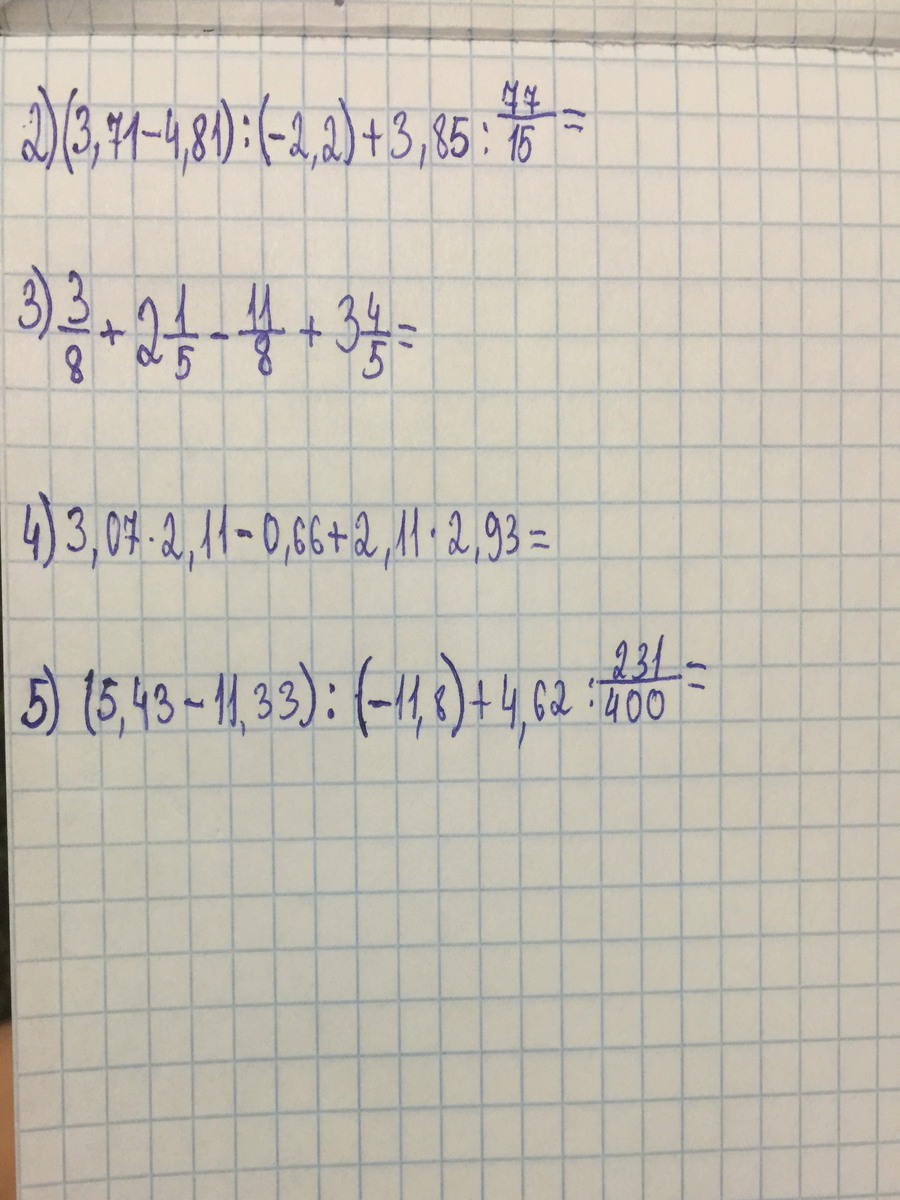 2) (3,71-4,81):(-2,2)+3,85:77/15=
3) 3/8 + 2 1/5 - 11/8 + 3 4/5 =
4) 3,07·2,11-0,66+2,11·2,93=
5) (5,43-11,33):(-11,8)+4,62:231/400=